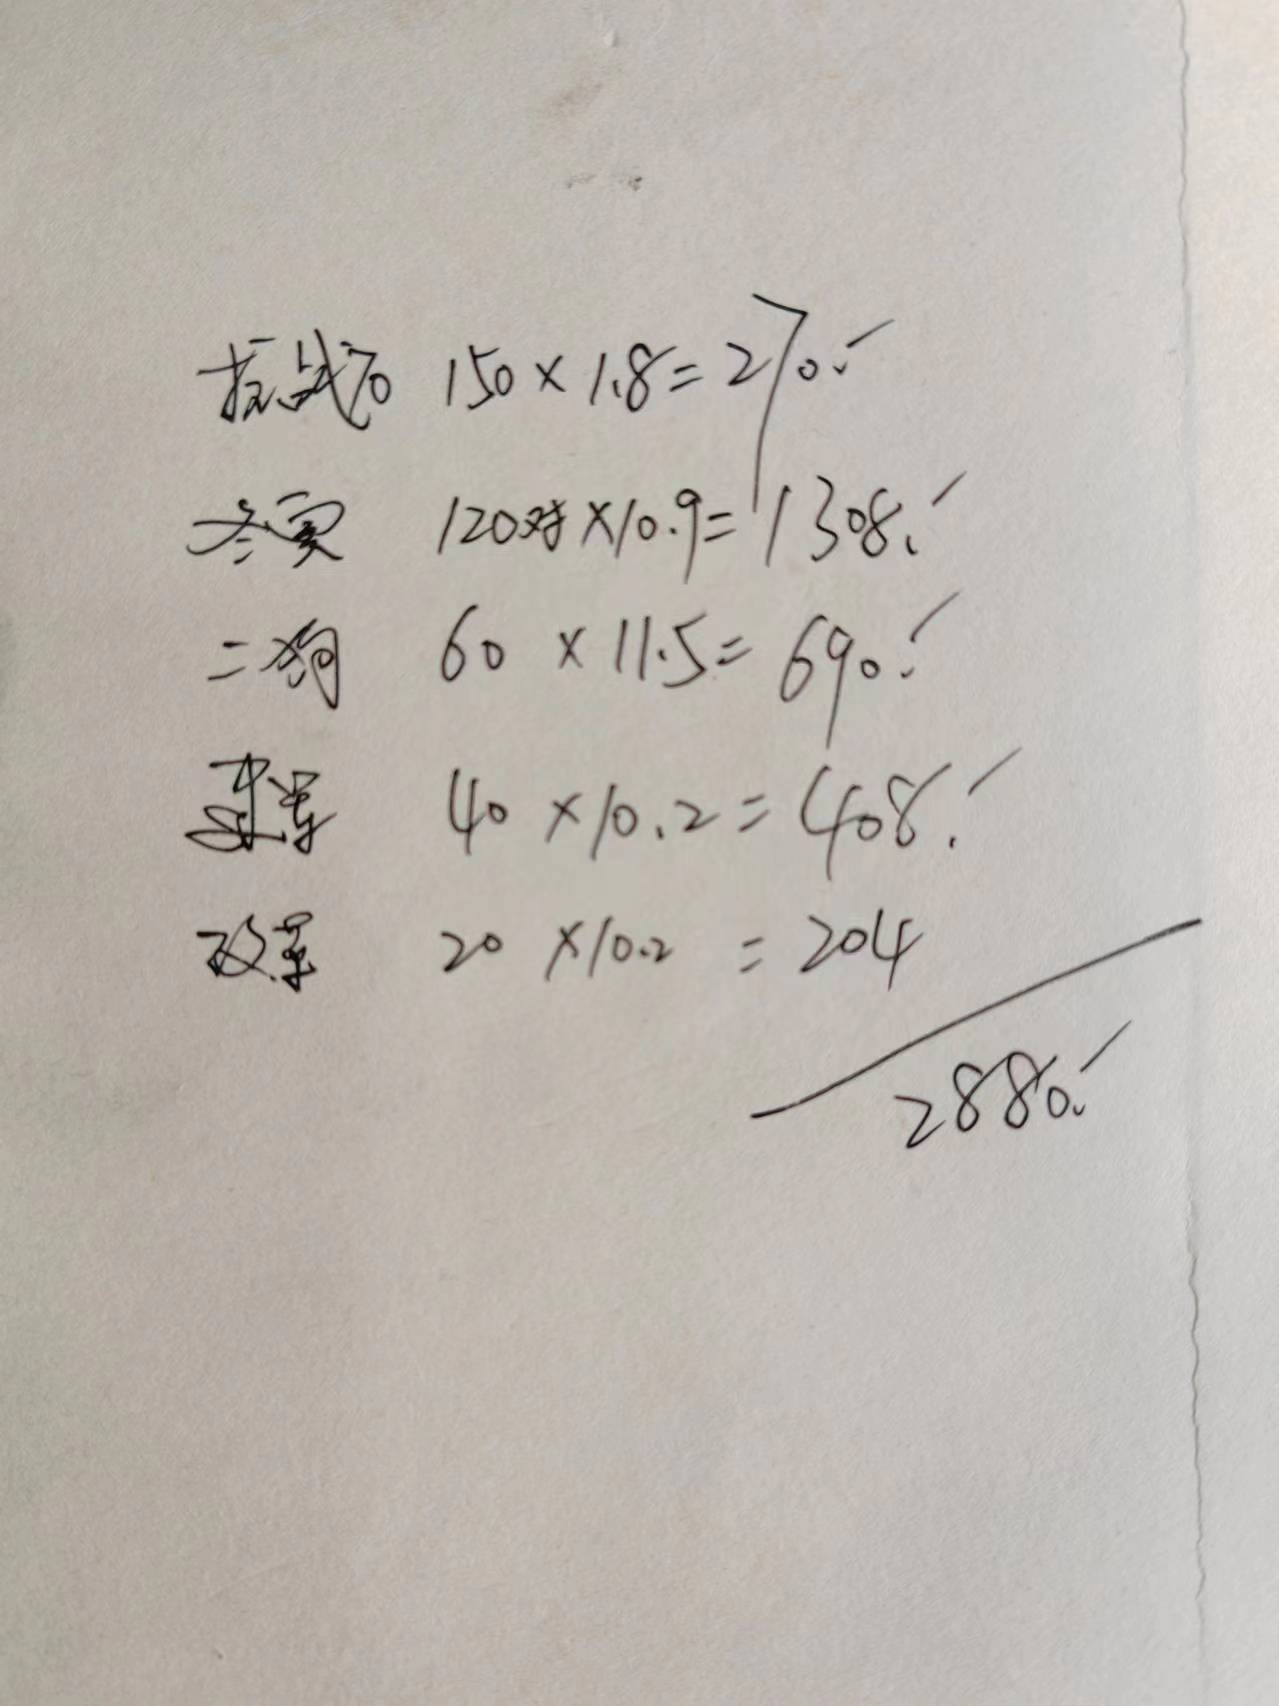 抗战70 150×1.8=270.
冬奥 120对×10.9=1308.
二狗 60×11.5=690.
建军 40×10.2=408.
改革 20×10.2=204
2880.